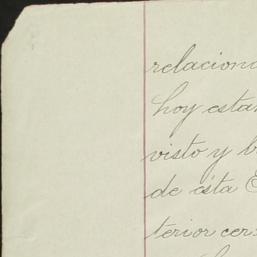 relacion
hoy esta
visto y b
de esta E
terior cer